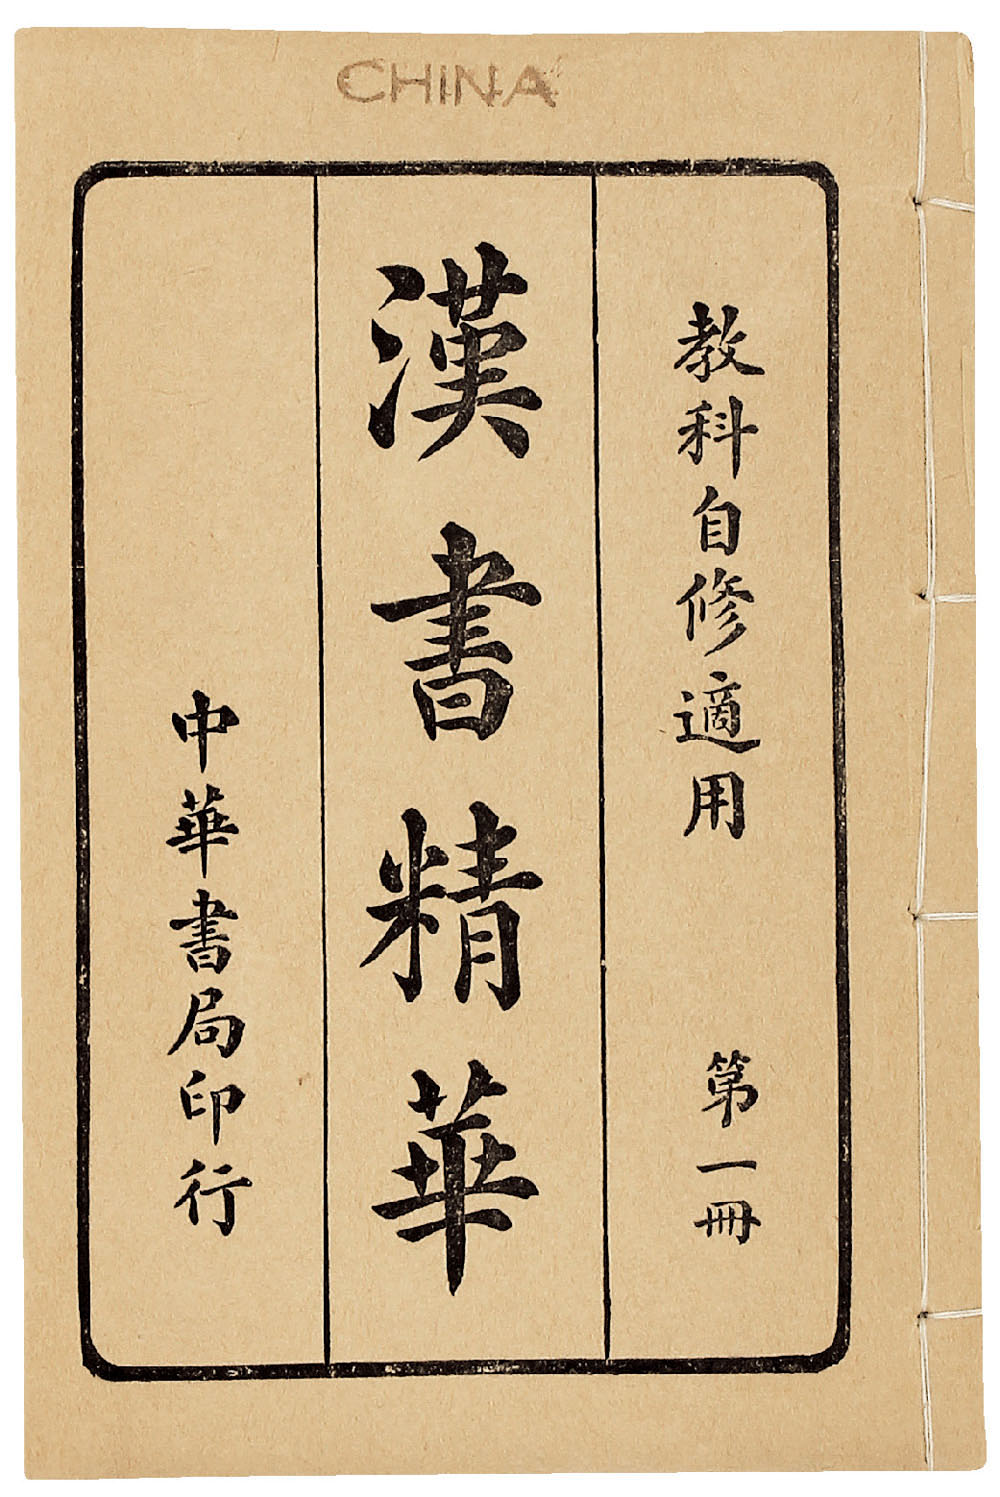 CHINA
教科自修適用 第一冊
漢書精華
中華書局印行